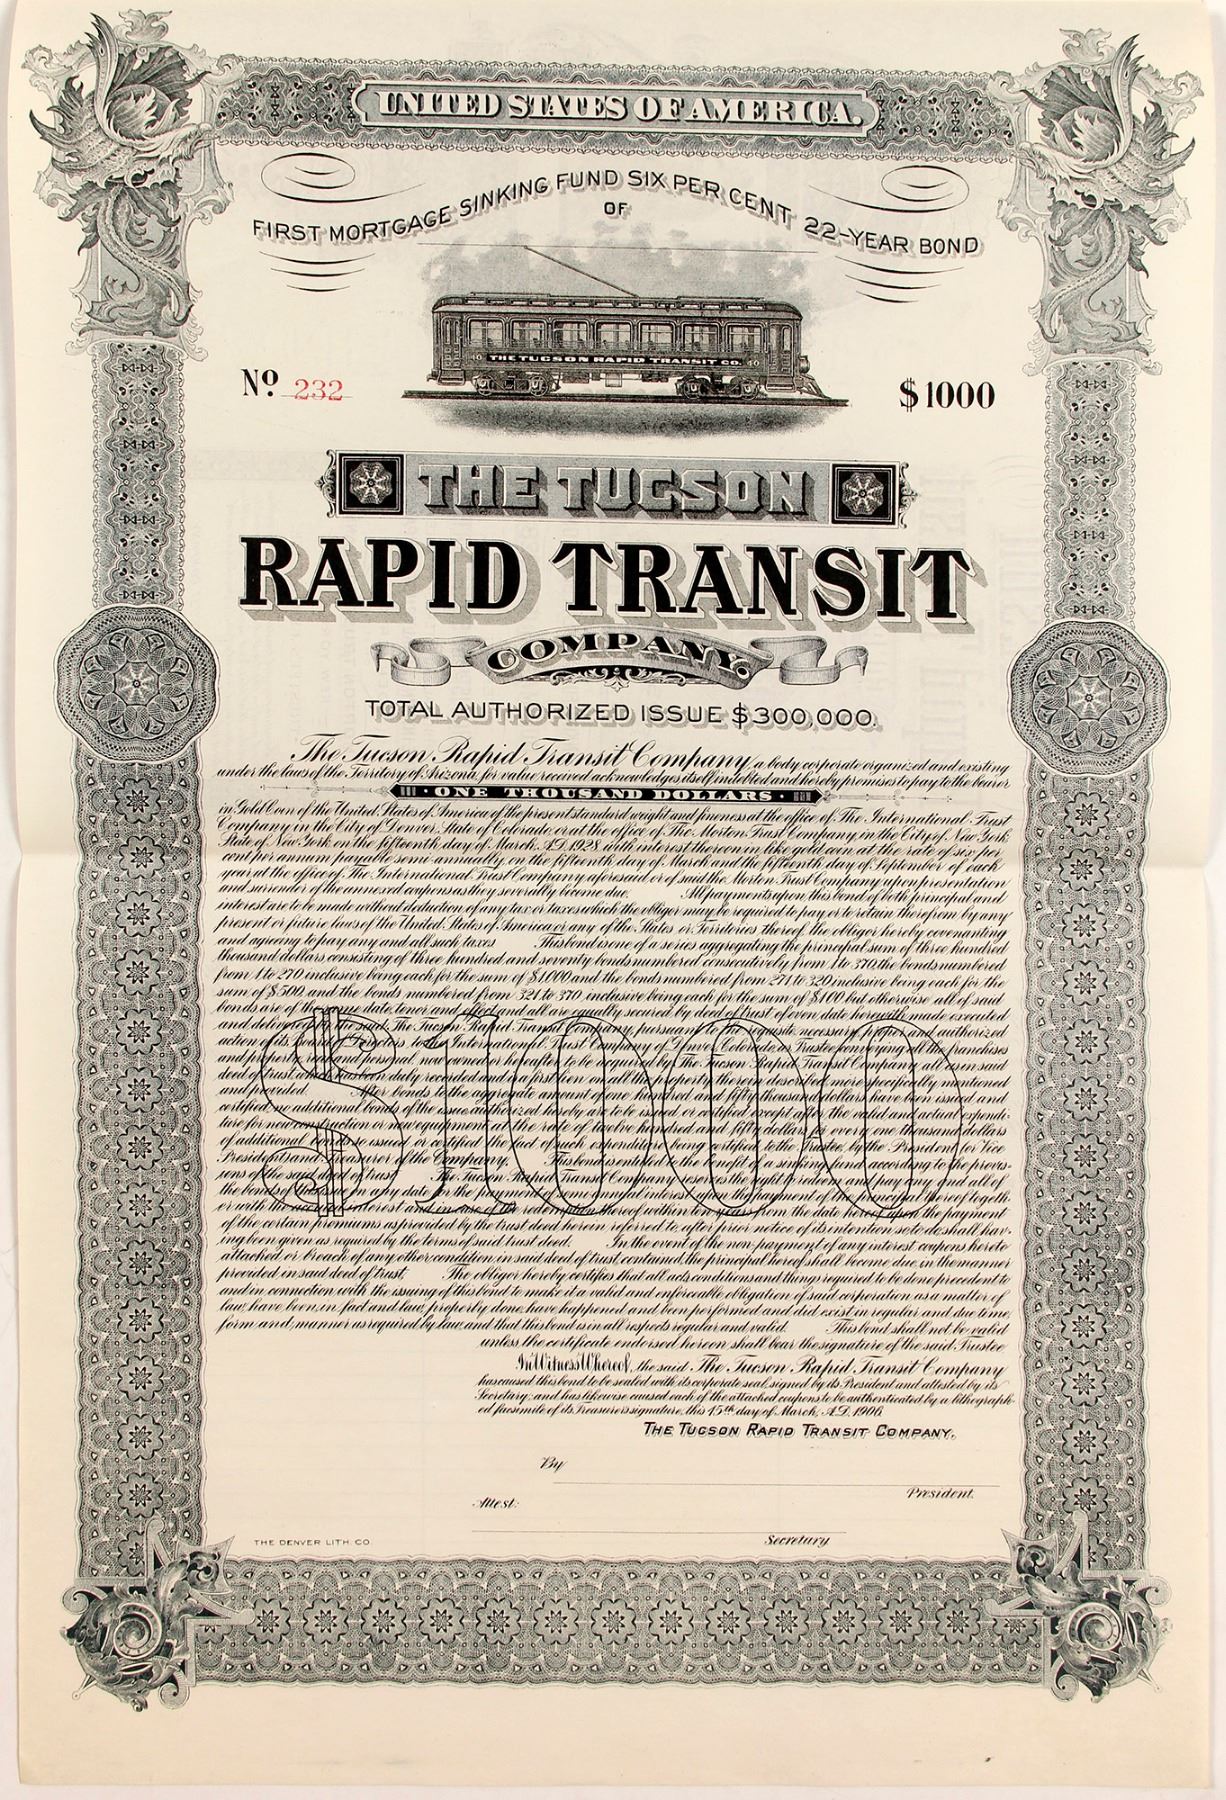 UNITED STATES OF AMERICA.
FIRST MORTGAGE SINKING FUND SIX PER CENT 22-YEAR BOND
OF
THE TUCSON RAPID TRANSIT CO.
40 40
No. 232
$1000
THE TUCSON
RAPID TRANSIT
COMPANY.
TOTAL AUTHORIZED ISSUE $300,000.
The Tucson Rapid Transit Company, a body corporate organized and existing
under the laws of the Territory of Arizona, for value received acknowledges itself indebted and hereby promises to pay to the bearer
· ONE THOUSAND DOLLARS ·
in Gold Coin of the United States of America of the present standard weight and fineness at the office of The International Trust
Company in the City of Denver, State of Colorado, or at the office of The Morton Trust Company in the City of New York
State of New York on the fifteenth day of March, A.D. 1928, with interest thereon in like gold coin at the rate of six per
cent per annum payable semi-annually, on the fifteenth day of March and the fifteenth day of September of each
year at the office of The International Trust Company aforesaid or of said the Morton Trust Company upon presentation
and surrender of the annexed coupons as they severally become due. All payments upon this bond of both principal and
interest are to be made without deduction of any tax or taxes which the obligor may be required to pay or to retain therefrom by any
present or future laws of the United States of America or any of the States or Territories thereof, the obligor hereby covenanting
and agreeing to pay any and all such taxes This bond is one of a series aggregating the principal sum of three hundred
thousand dollars consisting of three hundred and seventy bonds numbered consecutively from 1 to 370, the bonds numbered
from 1 to 270 inclusive being each for the sum of $1,000 and the bonds numbered from 271 to 320 inclusive being each for the
sum of $500, and the bonds numbered from 321 to 370 inclusive being each for the sum of $100 but otherwise all of said
bonds are of the same date, tenor and effect and all are equally secured by deed of trust of even date herewith made executed
and delivered by the said The Tucson Rapid Transit Company, pursuant to the requisite necessary, proper and authorized
action of its Board of Directors, to the International Trust Company of Denver, Colorado, as Trustee, conveying all the franchises
and property, real and personal, now owned or hereafter to be acquired by The Tucson Rapid Transit Company all as in said
deed of trust which has been duly recorded and is a first lien on all the property therein described, more specifically mentioned
and provided. After bonds to the aggregate amount of one hundred and fifty thousand dollars have been issued and
certified, no additional bonds of the issue authorized hereby are to be issued or certified except after the valid and actual expendi-
ture for new construction or new equipment at the rate of twelve hundred and fifty dollars for every one thousand dollars
of additional bonds so issued or certified the fact of such expenditure being certified to the Trustee, by the President (or Vice
President) and Treasurer of the Company. This bond is entitled to the benefit of a sinking fund according to the provis-
ions of the said deed of trust. The Tucson Rapid Transit Company reserves the right to redeem and pay any and all of
the bonds of this issue on any date for the payment of semi annual interest upon the payment of the principal thereof togeth-
er with the accrued interest and in case of the redemption thereof within ten years from the date hereof upon the payment
of the certain premiums as provided by the trust deed herein referred to after prior notice of its intention so to do shall hav-
ing been given as required by the terms of said trust deed. In the event of the non-payment of any interest coupons hereto
attached or breach of any other condition in said deed of trust contained, the principal hereof shall become due, in the manner
provided in said deed of trust. The obligor hereby certifies that all acts, conditions and things required to be done precedent to
and in connection with the issuing of this bond to make it a valid and enforceable obligation of said corporation as a matter of
law, have been, in fact and law, properly done, have happened and been performed and did exist in regular and due time,
form and manner as required by law, and that this bond is in all respects regular and valid. This bond shall not be valid
unless the certificate endorsed hereon shall bear the signature of the said Trustee
$1000
In Witness Whereof, the said The Tucson Rapid Transit Company
has caused this bond to be sealed with its corporate seal, signed by its President and attested by its
Secretary, and has likewise caused each of the attached coupons to be authenticated by a lithograph-
ed facsimile of its Treasurer's signature, this 15th day of March, A.D. 1906.
THE TUCSON RAPID TRANSIT COMPANY,
By
President.
Attest:
Secretary
THE DENVER LITH. CO.